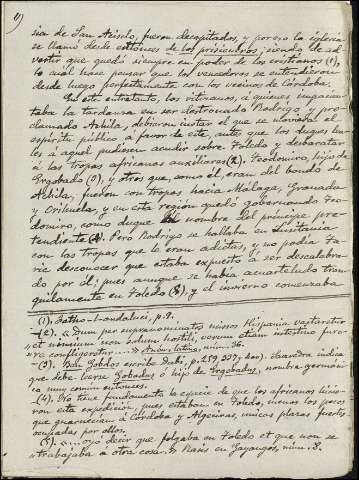 sia de San Acisclo, fueron decapitados, y por eso la iglesia
se llamó desde entonces de los prisioneros; siendo de ad-
vertir que quedó siempre en poder de los cristianos (1),
lo cual hace pensar que los vencedores se entendieron
desde luego perfectamente con los vecinos de Córdoba.
En este entretanto, los vitizanos, á quienes impacien-
taba la tardanza en ser destronado Rodrigo y pro-
clamado Achila, debieron instar el que se moviese el
espíritu público á favor de este, antes que los duques lea-
les á aquel pudiesen acudir sobre Toledo y desbaratar
á las tropas africanas auxiliares (2). Teodomiro, hijo de
Ergobado (3), y otros que, como él, eran del bando de
Achila, fueron con tropas hacia Málaga, Granada
y Orihuela, y en esta región quedó gobernando Teo-
domiro, como duque nombre del príncipe pre-
tendiente (4). Pero Rodrigo se hallaba en Lusitania
con las tropas que le eran adictas, y no podía Tá-
ric desconocer que estaba expuesto á ser descalabra-
do por él; pues aunque se había acuartelado tran-
quilamente en Toledo (5), y el invierno comenzaba
(1). Batho-l-andaluci, p. 9.
(2). «Dum per supranominatos missos Hispania vastaretur
et nimium non solum hostili, verum etiam intestino furo-
re confligeretur....» Anon. latino, núm. 36.
(3). Ben Gobdos escribe p. 259, 337, 400). Saavedra indica
que debe leerse Gobados ó hijo de Ergobadus, nombre germáni-
co muy común entonces.
(4). No tiene fundamento la especie de que los africanos hicie-
ron esta expedición, pues estaban en Toledo, menos los pocos
que guarnecían á Córdoba y Algeciras, únicas plazas fuertes
ocupadas por ellos.
(5). «...oyó decir que folgaba en Toledo et que non se
trabajaba á otra cosa.» Rasis en Gayangos, núm. 3.